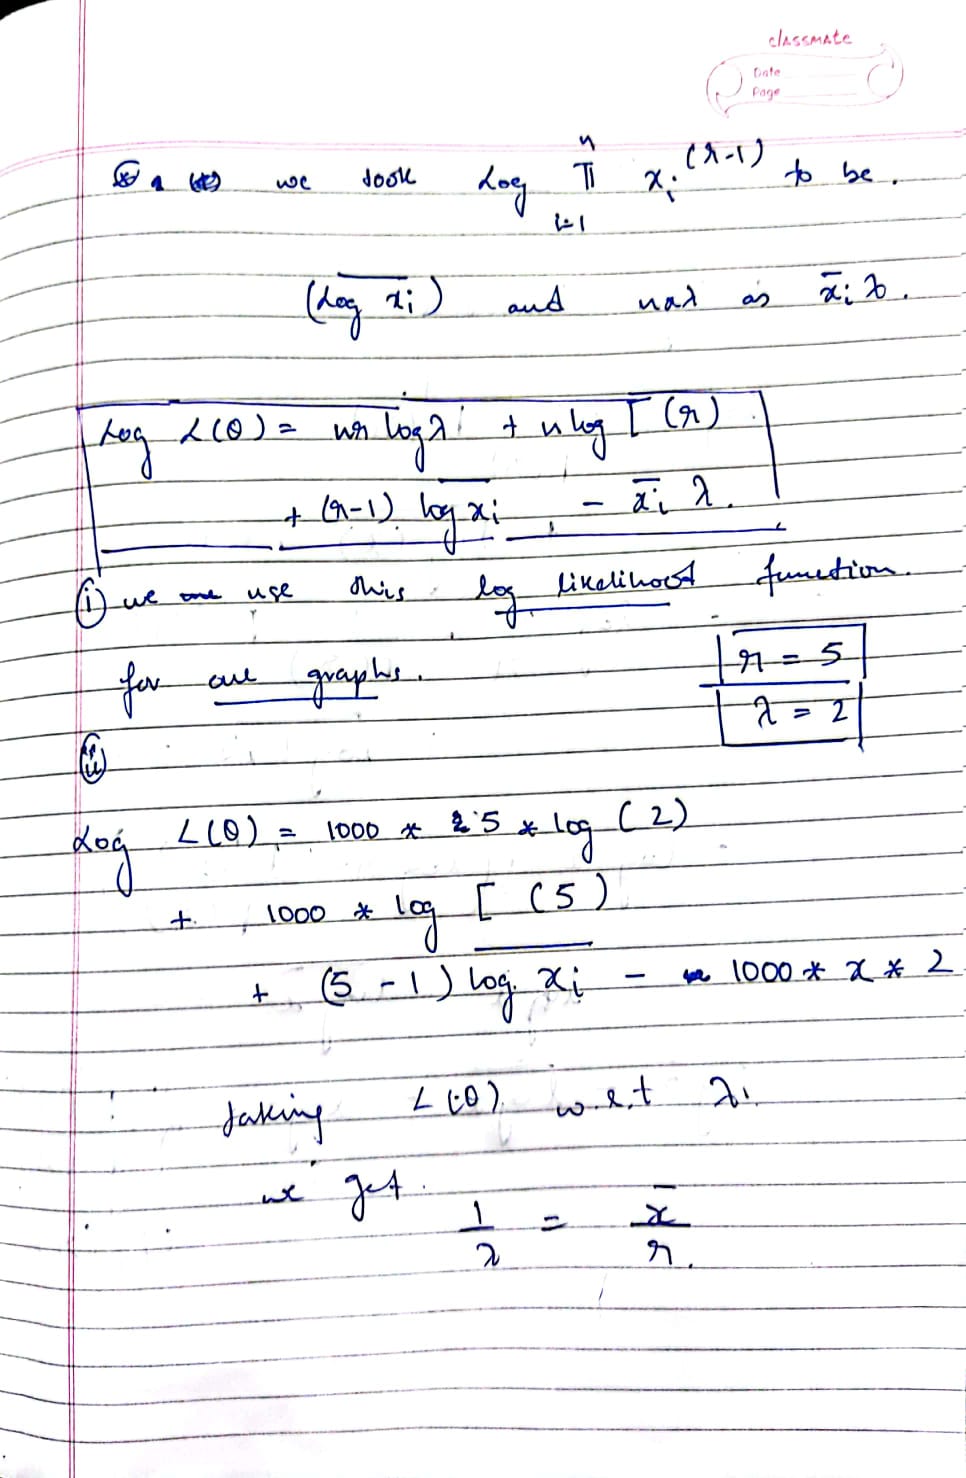 classmate
Date
Page
we took Log n ∏ i=1 x_i^(r-1) to be.
(Log x̄_i) and as x̄_i λ.
Log L(θ) = nr log λ + n log Γ(r)
+ (r-1) log x_i - x̄_i λ.
(i) we use this log likelihood function.
for our graphs.
r = 5
λ = 2
(ii)
Log L(θ) = 1000 * 5 * log (2)
+ 1000 * log Γ(5)
+ (5-1) log x_i - 1000 * x * 2
taking L(θ) w.r.t λ.
we get.
1/λ = x̄/r.